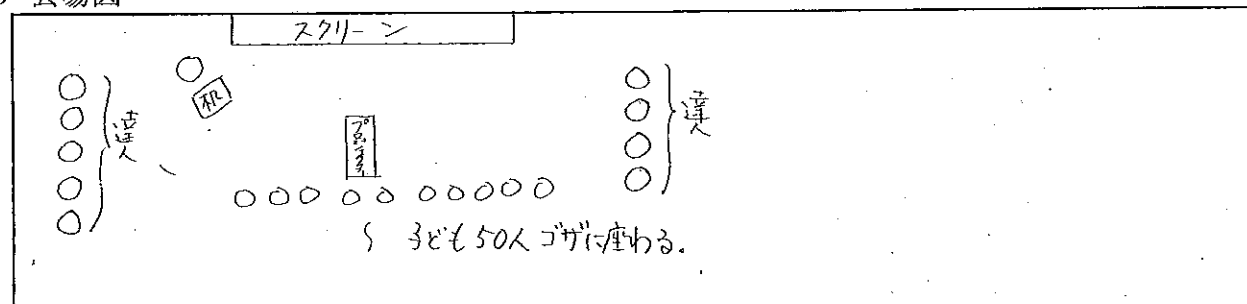 会場図
スクリーン
机
達人
プロジェクター
達人
〜 子ども50人ゴザに座わる。